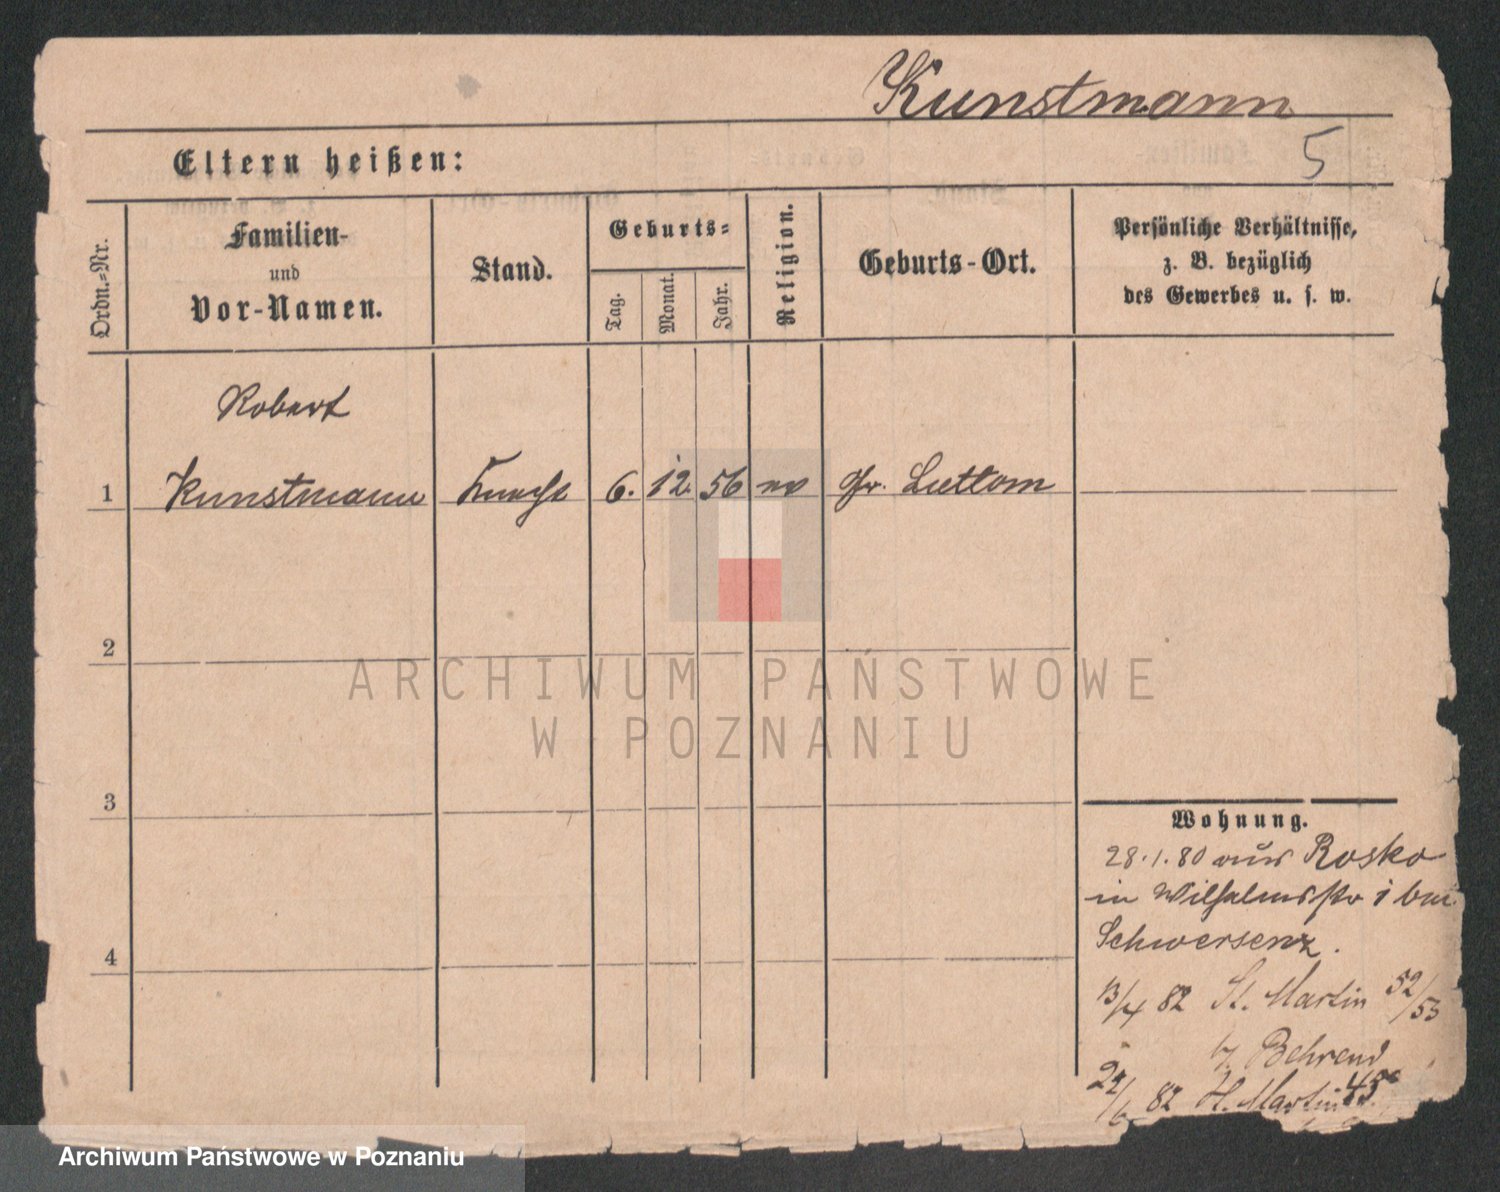 Kunstmann
5
Eltern heißen:
Ordn.=Nr.
Familien-
und
Vor-Namen.
Stand.
Geburts=
Tag.
Monat.
Jahr.
Religion.
Geburts-Ort.
Persönliche Verhältnisse,
z. B. bezüglich
des Gewerbes u. s. w.
Robert
1 Kunstmann Knecht 6. 12. 56 ev Gr. Luttom
2
ARCHIWUM PAŃSTWOWE
W POZNANIU
3
Wohnung.
28.1.80 aus Rosko
in Wilhelmsstr 1 bei
Schwersenz.
4
13/4 82 St. Martin 52/53
b/ Behrend
24/6 82 St. Martin 45
Archiwum Państwowe w Poznaniu